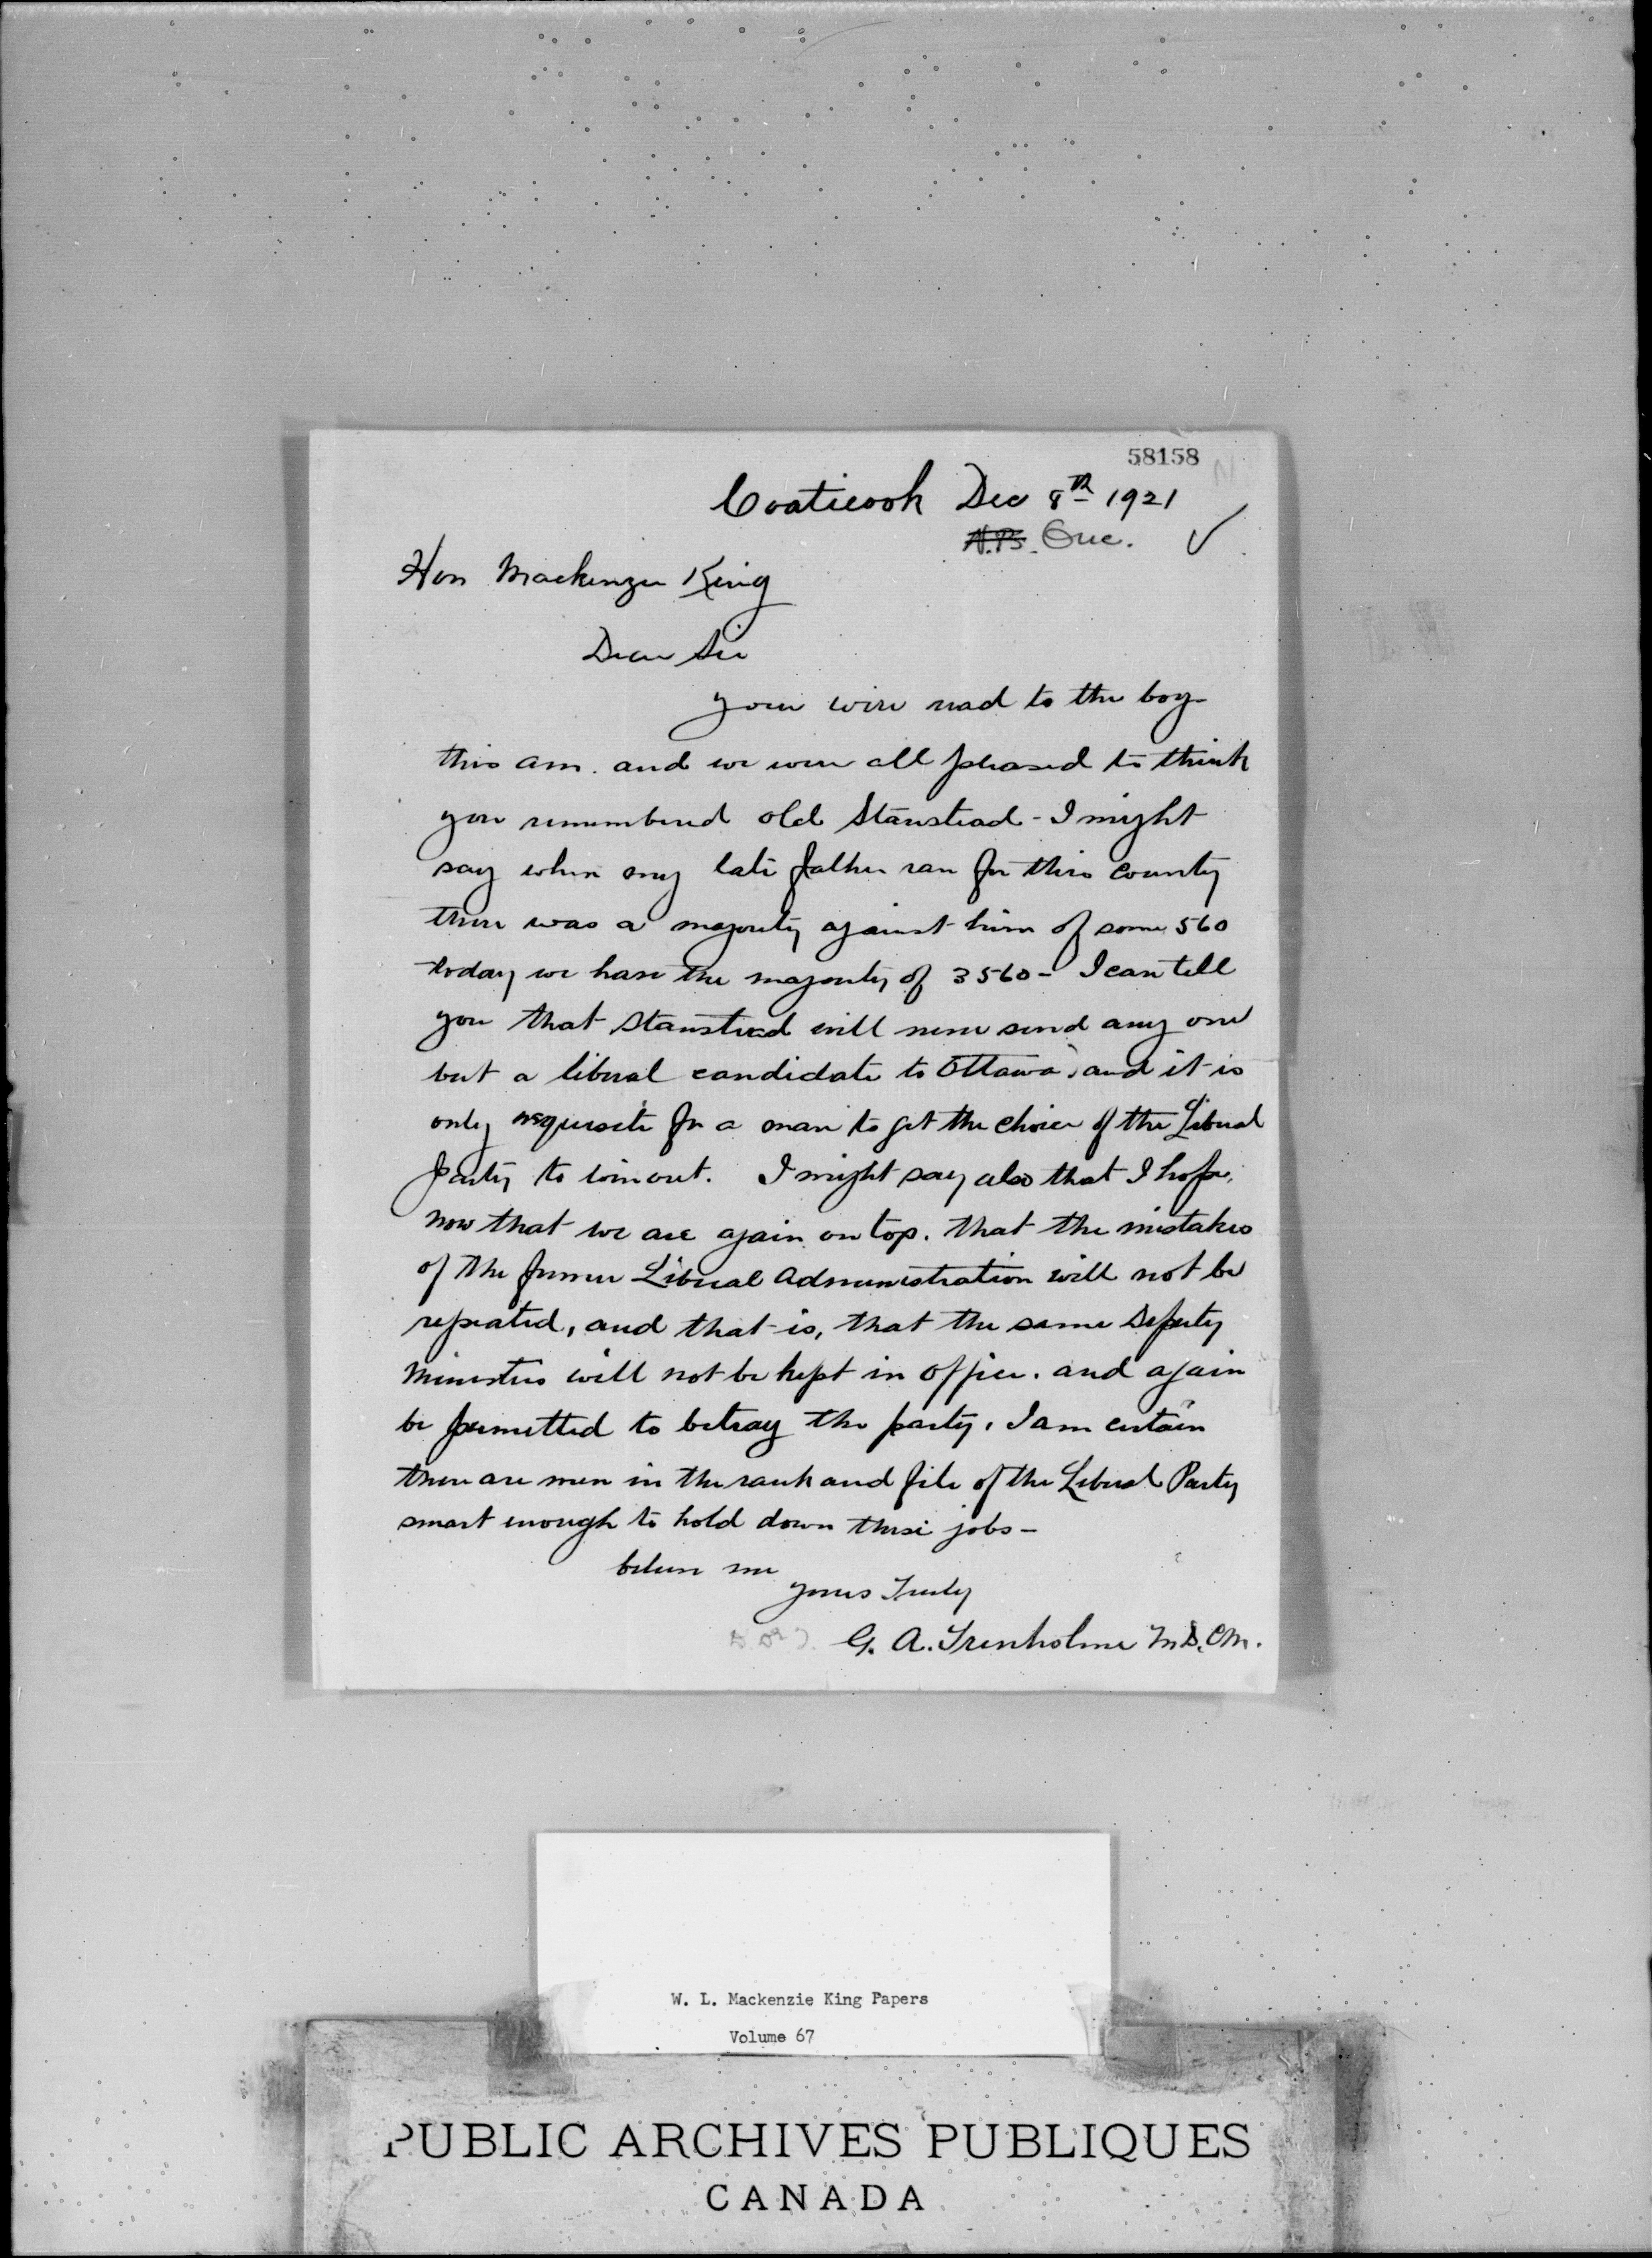 58158
Coaticook Dec 8th 1921
N.B. Que.
Hon Mackenzie King
Dear Sir
your wire read to the boys
this am. and we were all pleased to think
you remembered old Stanstead - I might
say when my late father ran for this county
there was a majority against him of some 560
today we have the majority of 3560 - I can tell
you that Stanstead will never send any one
but a liberal candidate to Ottawa, and it is
only requisite for a man to get the choice of the Liberal
Party to win out. I might say also that I hope,
now that we are again on top. that the mistakes
of the former Liberal Administration will not be
repeated, and that is, that the same Deputy
Ministers will not be kept in office. and again
be permitted to betray the party. I am certain
there are men in the rank and file of the Liberal Party
smart enough to hold down these jobs -
believe me
yours Truly
G. A. Trenholme M.D. C.M.
W. L. Mackenzie King Papers
Volume 67
PUBLIC ARCHIVES PUBLIQUES
CANADA